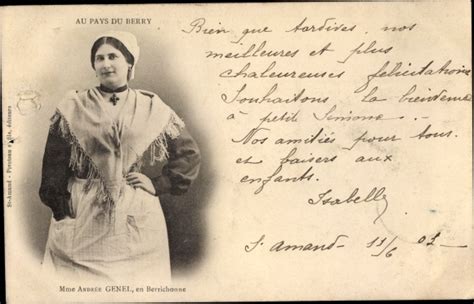 AU PAYS DU BERRY
Bien que tardives nos
meilleures et plus
chaleureuses félicitations
Souhaitons la bienvenue
à petit Simone. -
Nos amitiés pour tous
et baisers aux
enfants.
Isabelle
St Amand 11/6 02
St-Amand - édireurs
Mme ANDRÉE GENEL, en Berrichonne